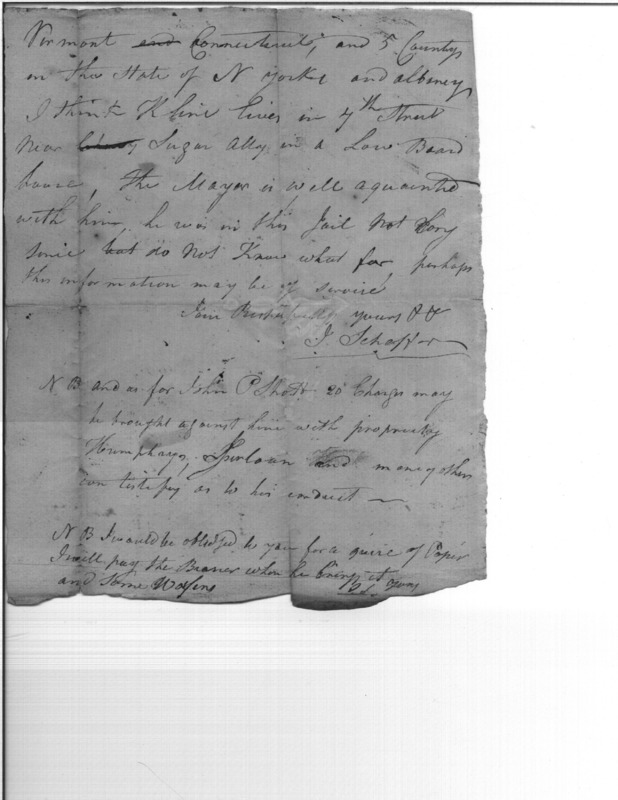 Vermont and Connecticut, and 5 Countys
in the State of N yorke and albaney
I think Kline lives in 7th Street
Near Sugar Alley in a Low Board
house, the Mayor is well aquainted
with him, he was in this Jail Not Long
sinie but do Not Know what for, perhaps
this information may be of service
I am Respectfully yours &&
J Schaffer
N B and as for John C Shott 20 Charges may
be brought against him with propriety
Humphrays, and many others
can testify as to his conduct
N B I would be oblidged to you for a quire of Paper
I will pay the Bearer when he brings it yours
and Some Wafers